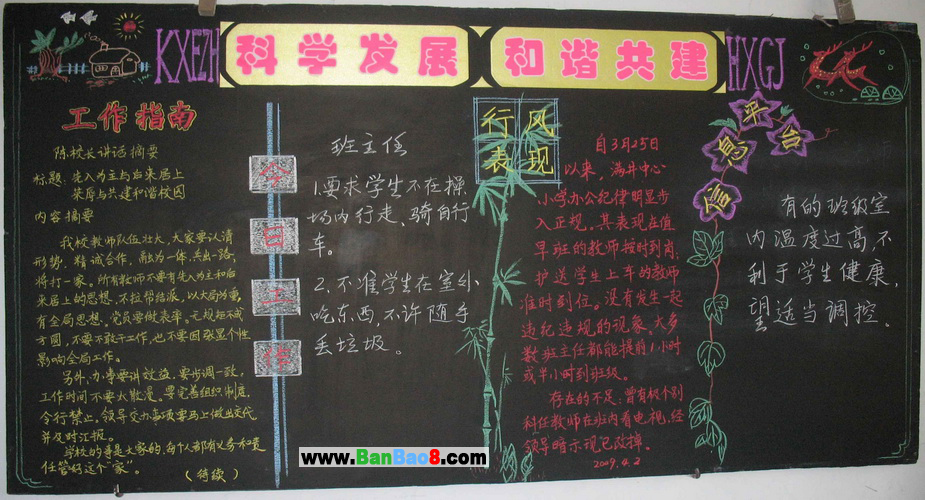 KXFZH
科学发展
和谐共建
HXGJ
工作指南
陈校长讲话摘要
标题:先入为主与后来居上
荣辱与共建和谐校园
内容摘要
我校教师队伍壮大,大家要认清
形势,精诚合作,融为一体,共出一路,
将打一家。所有教师不要有先入为主和后
来居上的思想,不拉帮结派,以大局为重,
有全局思想。党员要做表率。无规矩不成
方圆,不要不敢干工作,也不要因张显个性
影响全局工作。
另外,办事要讲效益,要步调一致,
工作时间不要太散漫。要完善组织制度,
令行禁止。领导交办事项要马上做出交代
并及时汇报。
学校的事是大家的,每个人都有义务和责
任管好这个“家”。(待续)
今日工作
班主任
1.要求学生不在操
场内行走、骑自行
车。
2.不准学生在室外
吃东西,不许随手
丢垃圾。
行风
表现
自3月25日
以来,满井中心
小学办公纪律明显步
入正规。其表现在值
早班的教师按时到岗,
护送学生上车的教师
准时到位。没有发生一起
违纪违规的现象,大多
数班主任都能提前1小时
或半小时到班级。
存在的不足:曾有极个别
科任教师在班内看电视,经
领导暗示现已改掉。
2009.4.2
信息平台
有的班级室
内温度过高,不
利于学生健康,
望适当调控。
www.BanBao8.com